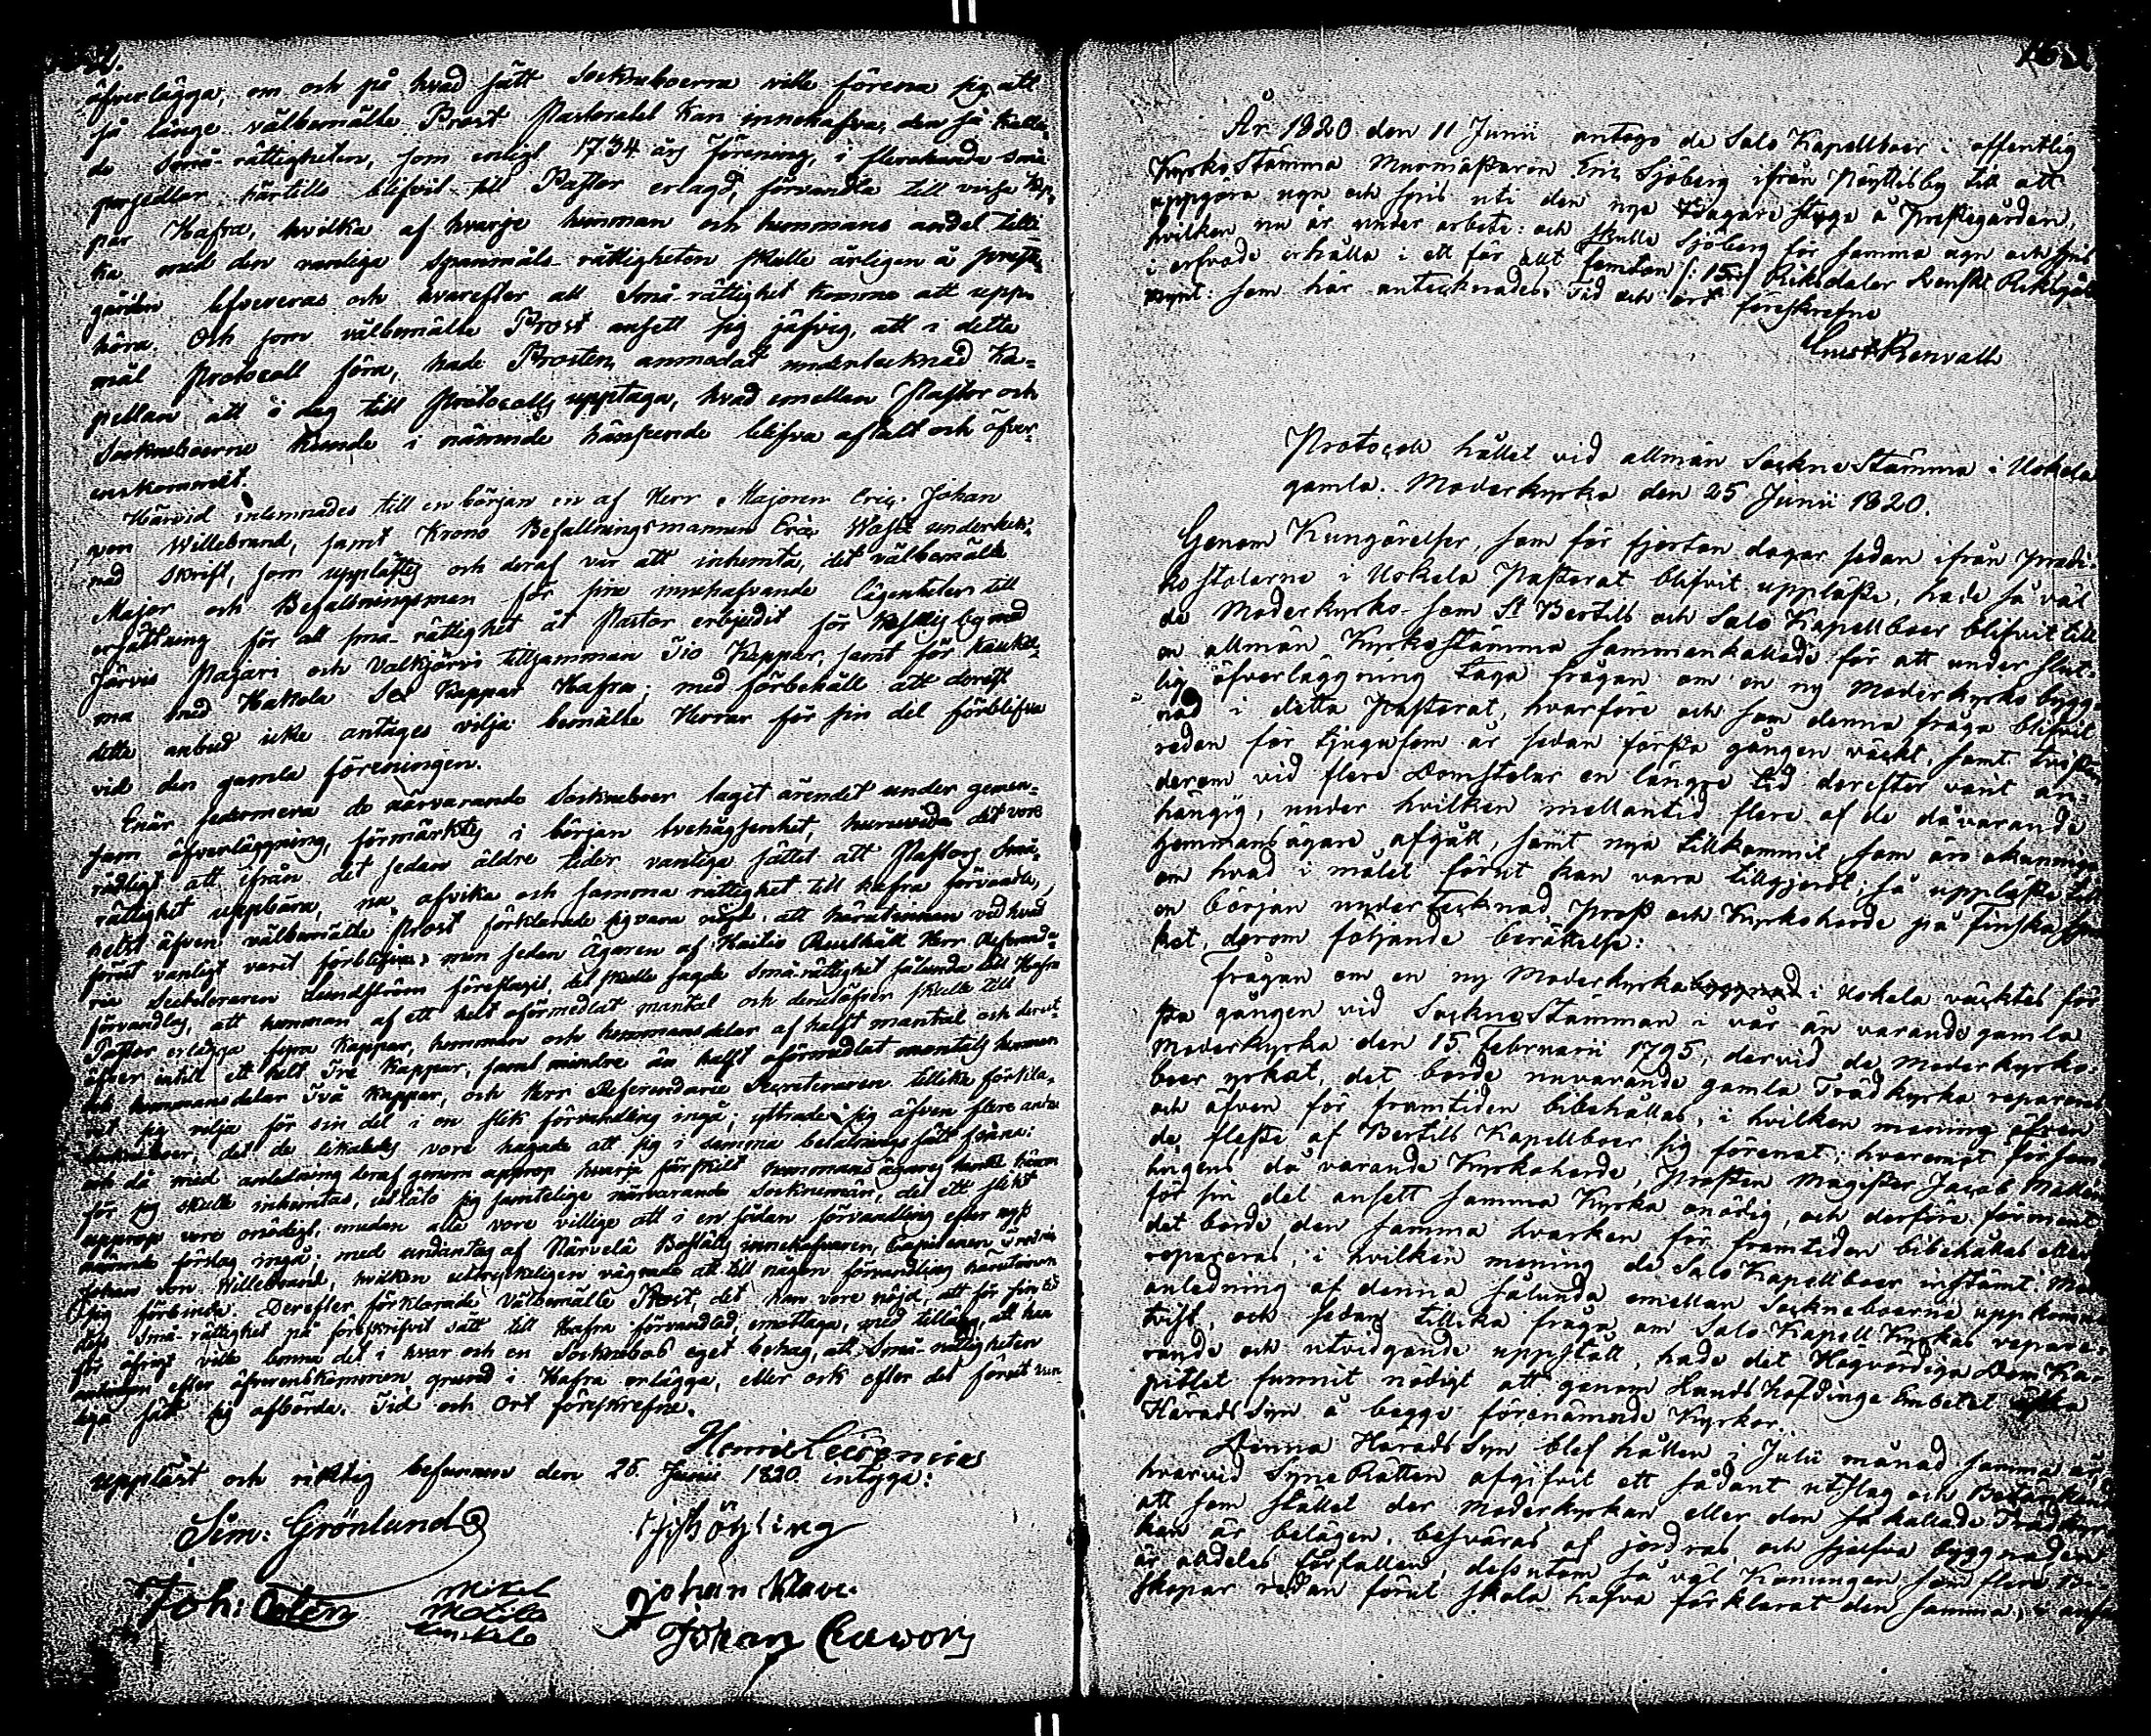 öfverlägga, om och på hvad sätt Sockneboerna ville förena sig att
så länge välbemälte Prost Pastoratet kan innehafva, den så kalla-
de Små-rättigheten, som enligt 1734 års Förening, i flerahanda små
persedlar härtills blifvit till Pastor erlagd, förvandla till vissa Kap-
par Hafra, hvilka af hvarje hemman och hemmans andel tilli-
ka med den vanliga Spanmåls rättigheten skulle årligen å preste-
gården lefvereras och hvarefter all Små-rättighet komme att upp-
höra. Och som välbemälte Prost ansett sig jäfvig, att i detta
mål Protocoll föra, hade Prosten anmodat undertecknad Ka-
pellan att i dag till Protocolls upptaga, hvad emellan Pastor och
Sockneboerne kunde i nämnde hänseende blifva aftalt och öfver-
enskommit.
Härvid inlemnades till en början en af Herr Majoren Eric Johan
von Willebrand, samt Krono Befallningsmannen Eric underteck-
nad skrift, som upplästes och deraf var att inhemta, det välbemälte
Major och Befallningsman för sine innehafvande lägenheter till
ersättning för all små-rättighet åt Pastor erbjudit för by med
Järvis Pajari och Valkjärvi tillsamman Tio Kappar, samt för
ma med Hakola Sex Kappar Hafra; med förbehåll att derest
detta anbud icke antages vilja bemälte Herrar för sin del förblifva
vid den gamla föreningen.
Enär sedermera de närvarande Socknboer tagit ärendet under gemen-
sam öfverläggning, förmärktes i början tvehågsenhet, huruvida det vore
rådligt att ifrån det sedan äldre tider vanliga sättet att Pastors Små-
rättighet uppbära, nu afvika och samma rättighet till hafra förvandla,
helst äfven välbemälte Prost förklarade sig vara nöjd, att härutinnan vid hvad
förut vanligt varit förblifva; men sedan Ägaren af Kaitis Rusthåll Herr Referenda-
rie Secreteraren Lundström föreslagit, det skulle sagde Små-rättighet sålunda till Hafra
förvandlas, att hemman af ett helt oförmedlat mantal och derutöfver skulle till
Pastor erlägga fyra Kappar, hemman och hemmansdelar af halft mantal och derut-
öfver intill ett helt Tre Kappar, samt mindre än halft oförmedlat mantals hemman
och hemmansdelar Två Kappar, och Herr Referendarie Secreteraren tillika förkla-
rat sig vilja för sin del i en slik förvandling ingå; yttrade sig äfven flere andre
Socknboer, det de likaledes vore hågade att sig i samma betalnings sätt förena:
och då med anledning deraf genom upprop hvarje särskilt hemmans ägares tanke härom
för sig skulle inhemtas, utläto sig samtelige närvarande Socknemän, det ett slikt
upprop vore onödigt, medan alla vore villige att i en sådan förvandling efter nyss
nämnde förslag ingå; med undantag af Närvelä Boställs innehafvaren, Capitainen
Johan von Willebrand, hvilken uttryckeligen vägrade att till någon förvandling härutinnan
sig förbinda. Derefter förklarade Välbemälte Prost, det han vore nöjd, att för sin tid
dess Små-rättighet på föreskrifvit sätt till Hafra förvandlad, emottaga, med tillägg, att han
för öfrigt ville lemna det i hvar och en Socknebos eget behag, att Små-rättigheten
antingen efter öfverenskommen grund i Hafra erlägga, eller ock efter det förut van-
liga sätt sig afbörda. Tid och Ort föreskrefne.
Henric
uppläst och riktig befunnen den 25 Junii 1820 intyga:
Sim: Grönlund
Joh:
Mikel
Johan
Johan
År 1820 den 11 Junii antogo de Salo Kapellboer i offentlig
Kyrko Stämma Murmästaren Eric Sjöberg ifrån Pöytisby till att
uppgöra ugn och spis uti den nya Bagare stuga å Prestegården,
hvilken nu är under arbete: och skulle Sjöberg för samma ugn och spis
i arfvode erhålla i ett för allt femton /: 15 :/ Riksdaler Svenskt Riksgäld
mynt: som här antecknades. Tid och ort föreskrefne
Gust Renvall
Protocoll hållet vid allmän Sockne Stämma i Uskela
gamla Moderkyrka den 25 Junii 1820.
Genom Kungörelser, som för fjorton dagar sedan ifrån predi-
kostolarne i Uskela Pastorat blifvit uppläste, hade så väl
de Moderkyrko- som St Bertils och Salo Kapellboer blifvit till
en allmän Kyrkostämma sammankallade för att under slut-
lig öfverläggning taga frågan om en ny Moderkyrko bygg-
nad i detta Pastorat, hvarföre och som denna fråga blifvit
redan för tjugufem år sedan första gången väckt, samt tvisten
derom vid flere Domstolar en längre tid derefter varit an-
hängig, under hvilken mellantid flere af de då varande
Hemmansägare afgått, samt nya tillkommit, som äro okunniga
om hvad i målet förut kan vara tillgjordt; så uppläste till
en början undertecknad Prost och Kyrkoherde på Finska språ-
ket, derom följande berättelse:
Frågan om en ny Moderkyrka byggnad i Uskela väcktes för-
sta gången vid Sockne Stämman i vår än varande gamla
Moderkyrka den 15 Februarii 1795, dervid de Moderkyrko-
boer yrkat, det borde nuvarande gamla Trädkyrka repareras
och äfven för framtiden bibehållas, i hvilken mening äfven
de fleste af Bertils Kapellboer sig förenat; hvaremot försam-
lingens då varande Kyrkoherde, Prosten Magister Jacob
för sin del ansett samma Kyrka onödig, och derföre förment
det borde den samma hvarken för framtiden bibehållas eller
repareras, i hvilken mening de Salo Kapellboer instämt. Med
anledning af denna sålunda emellan Socknboerne uppkomna
tvist, och sedan tillika fråga om Salo Kapell Kyrkas repare-
rande och utvidgande uppstått, hade det Högvördiga Dom Ka-
pitlet funnit nödigt att genom Lands Höfdinge Embetet
Härads Syn å begge förenämnde Kyrkor.
Denna Härads Syn blef hållen i Julii månad samma år,
hvarvid Syne Rätten afgifvit ett sådant utslag och Betänkande
att som stället der Moderkyrkan eller den så kallade Trädkyr-
kan är belägen, besväras af jordras, och sjelfva byggnaden
är aldeles förfallen, dessutom så väl Konungen som flere Bi-
skopar redan förut skola hafva förklarat den samma,